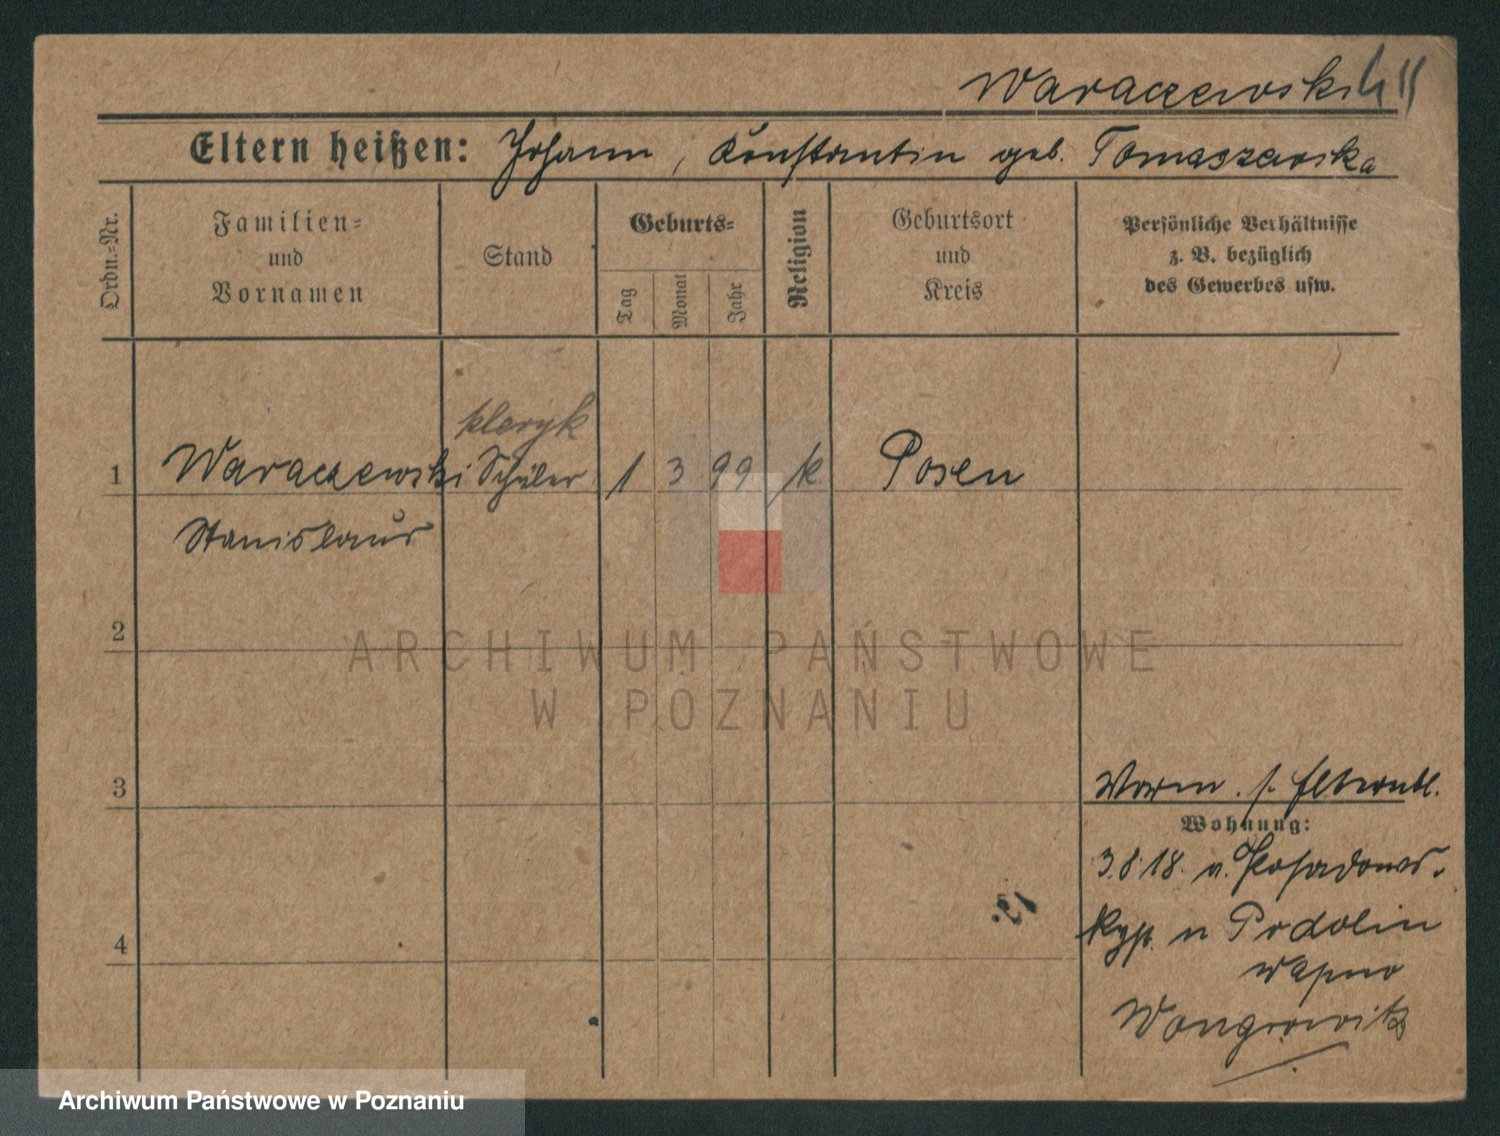 Waraczewski
Eltern heißen: Johann, Konstantin geb. Tomaszewska
Ordn.=Nr.
Familien=
und
Vornamen
Stand
Geburts=
Tag
Monat
Jahr
Religion
Geburtsort
und
Kreis
Persönliche Verhältnisse
z. B. bezüglich
des Gewerbes usw.
kleryk
1 Waraczewski Schüler 1 3 99 k Posen
Stanislaus
2
ARCHIWUM PAŃSTWOWE
W POZNANIU
3
Wohnung:
3.8.18. n.
4
n Podolin
Wapno
Wongrowitz
Archiwum Państwowe w Poznaniu